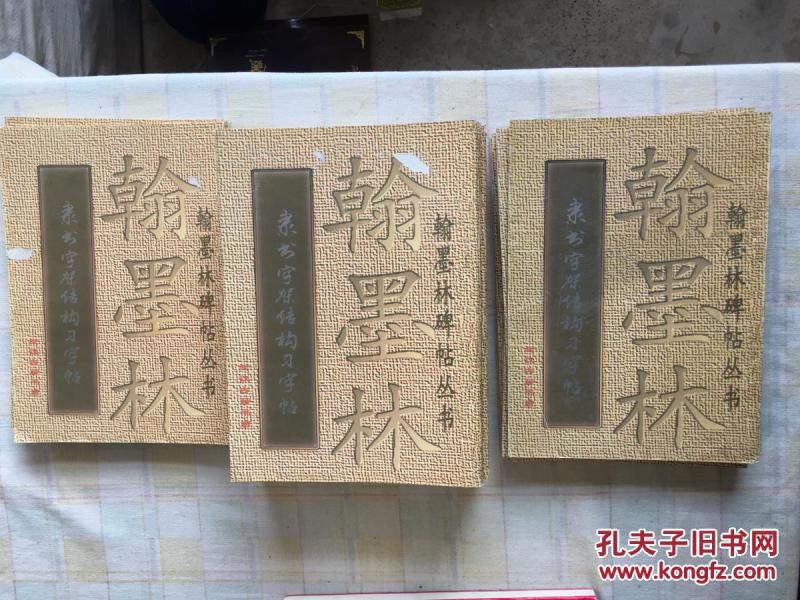 翰墨林
翰墨林碑帖丛书
隶书字架结构习字帖
翰墨林
翰墨林碑帖丛书
隶书字架结构习字帖
翰墨林
翰墨林碑帖丛书
隶书字架结构习字帖
孔夫子旧书网
www.kongfz.com